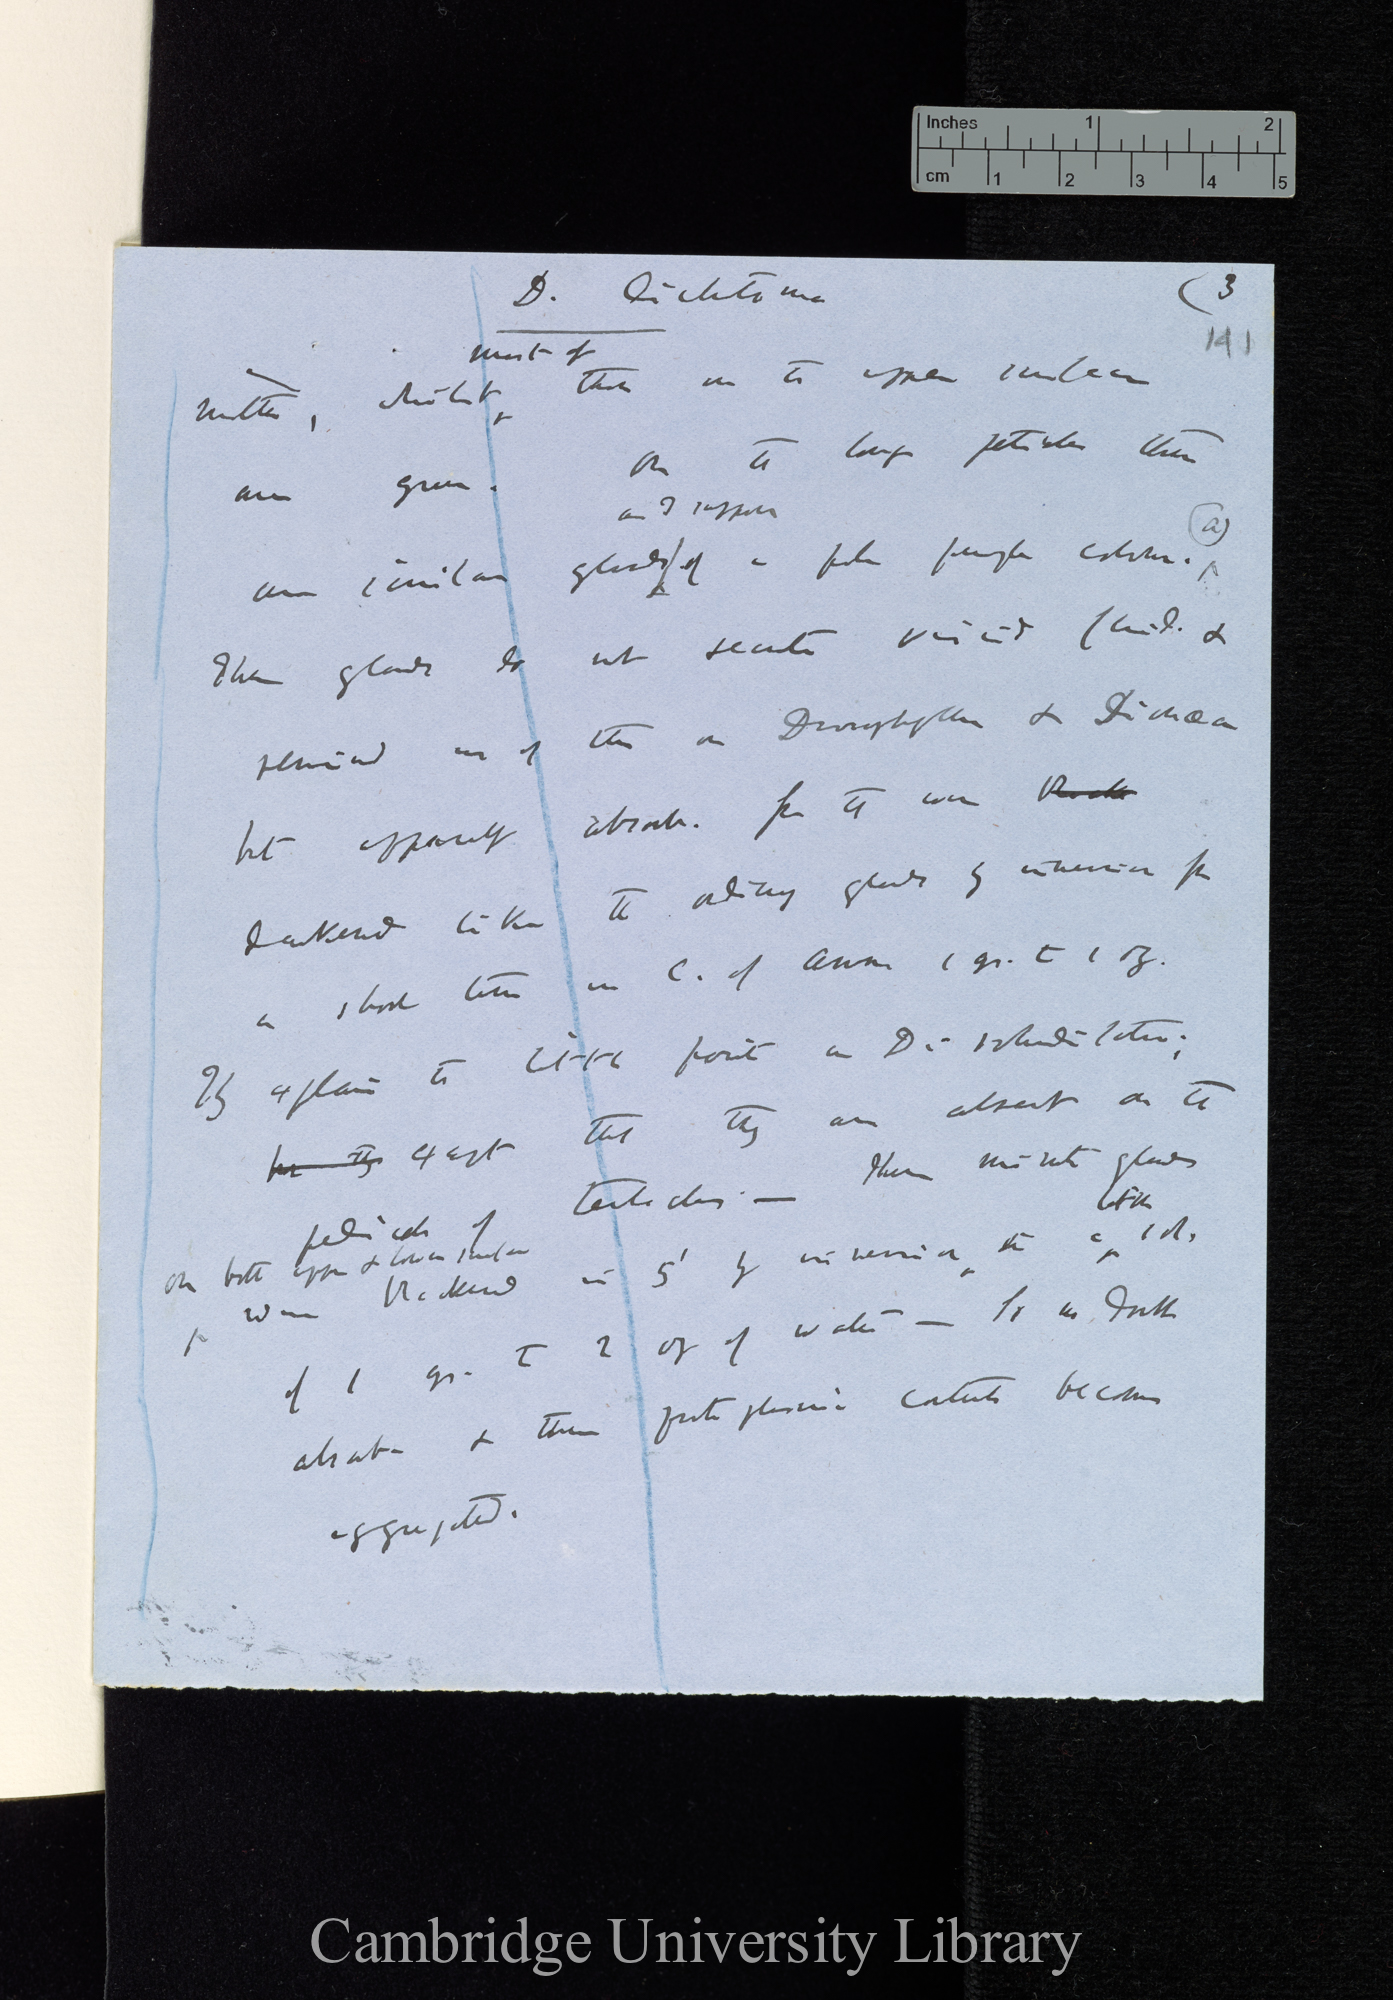 Inches 1 2
cm 1 2 3 4 5
D. dichotoma (3
141
most of
matter, whilst those on the upper surface
are green. On the long petioles there
as I suppose (a)
are similar glands of a pale purple colour.
These glands do not secrete viscid fluid. &
remind me of those on Drosophyllum & Dionaea
but apparently absorb. for the were
darkened like the ordinary glands by immersion for
a short time in C. of Amm 1 gr. to 1 oz.
They explain the little points on D. rotundifolia;
but they except that they are absent on the
pedicels of tentacles. — These minute glands
on both upper & lower surface little
were blackened in 5' by immersion in a sol.
of 1 gr. to 2 oz of water — So no doubt
absorb & their protoplasmic contents become
aggregated.
Cambridge University Library